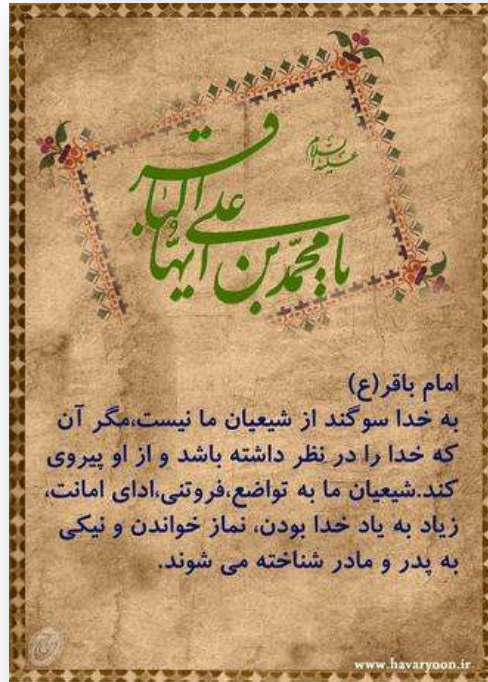 علیه السلام
یا محمد بن علی ایها الباقر
امام باقر(ع)
به خدا سوگند از شیعیان ما نیست،مگر آن
که خدا را در نظر داشته باشد و از او پیروی
کند.شیعیان ما به تواضع،فروتنی،ادای امانت،
زیاد به یاد خدا بودن، نماز خواندن و نیکی
به پدر و مادر شناخته می شوند.
www.havaryoon.ir